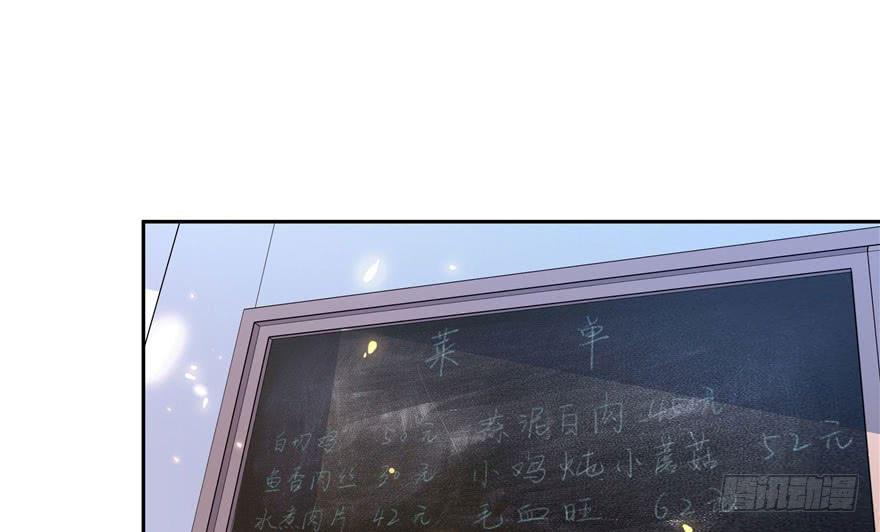 菜 单
白切鸡 58元 蒜泥白肉 48元
鱼香肉丝 30元 小鸡炖小蘑菇 52元
水煮肉片 42元 毛血旺 62元
腾讯动漫